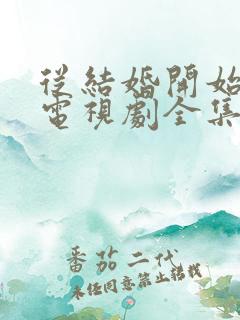 從結婚開始
電視劇全集
番茄二代
未经同意禁止转载